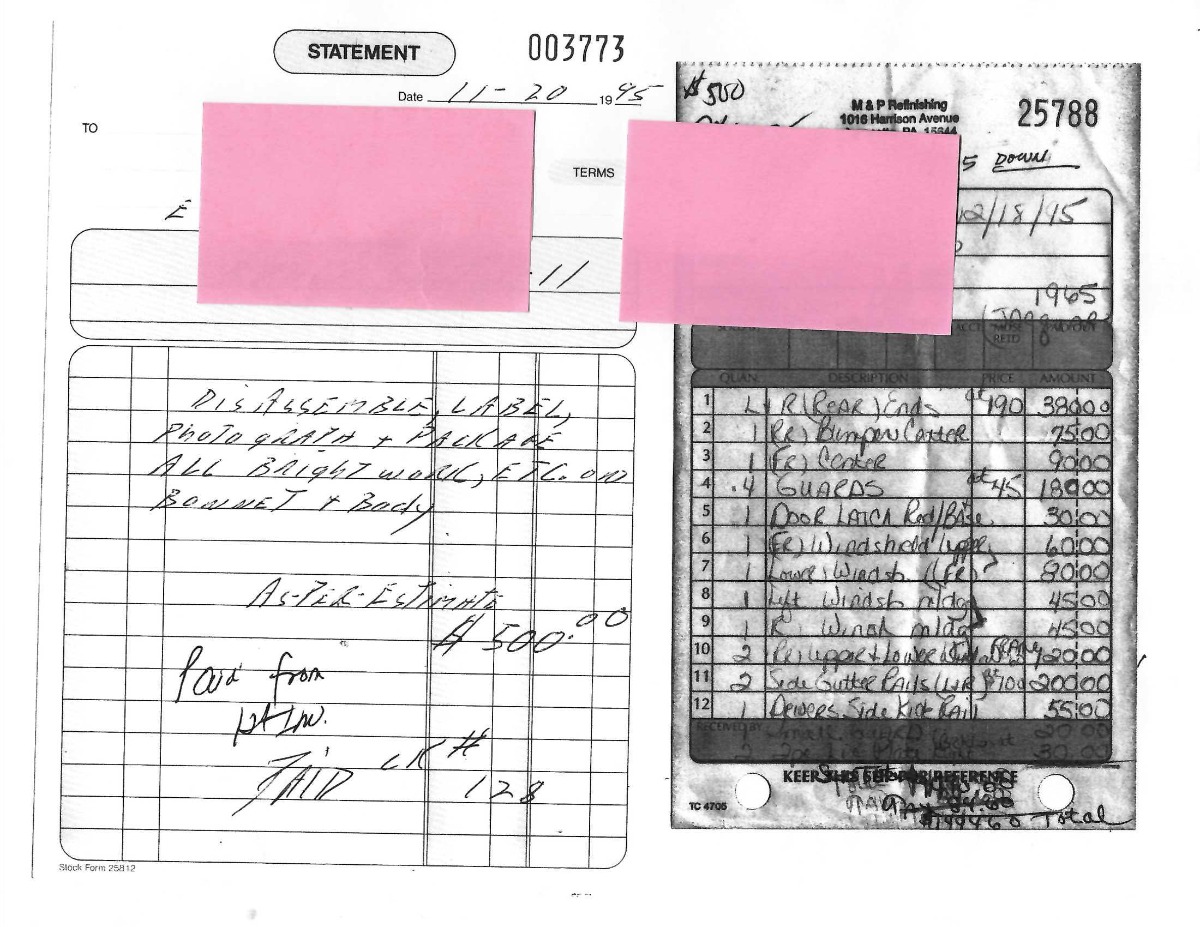 STATEMENT
003773
Date 11-20 1995
TO
TERMS
E
-11
DISASSEMBLE, LABEL,
PHOTOGRAPH + PACKAGE
ALL BRIGHTWORK, ETC. ON
BONNET + Body
AS-PER-ESTIMATE
$ 500.00
Paid from
1st Inv.
PAID CK #
128
Stock Form 25812
$500
M & P Refinishing
1016 Harrison Avenue
PA. 15644
25788
5 DOWN
12/18/95
1965
QUAN. DESCRIPTION PRICE AMOUNT
1 L+R (REAR) Ends at 190 380 00
2 1 (RR) Bumper Center 75 00
3 1 (FR) Center 90 00
4 4 GUARDS at 45 180 00
5 1 DOOR LATCH Rod/Base 30 00
6 1 (FR) Windshield Upper 60 00
7 1 Lower Windsh. (FR) 80 00
8 1 Left Windsh mldg 45 00
9 1 R. Winsh mldg 45 00
10 2 (RR) Upper + Lower 420 00
11 2 Side Gutter Rails (L+R) at 100 200 00
12 1 Drivers Side Kick RAIL 55 00
RECEIVED BY
20 00
30 00
KEEP THIS SLIP FOR REFERENCE
TC 4705
Total